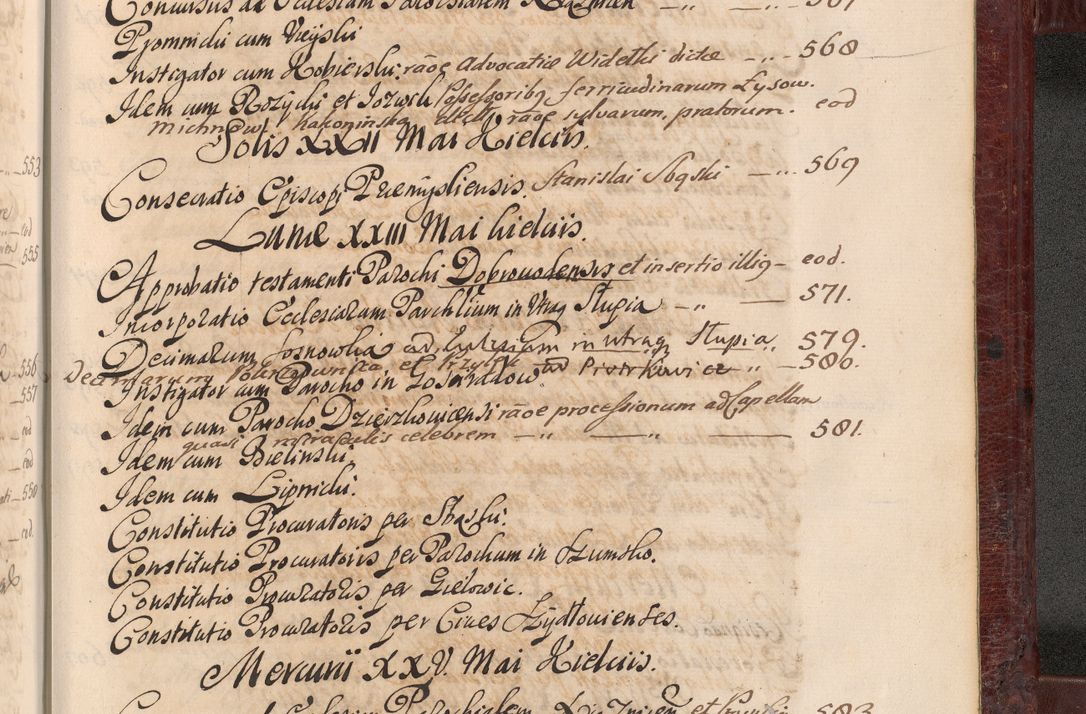 Concursus ad Ecclesiam Parochialem - „ — „ - 567
Promnicki cum Vieyski
Instigator cum Kobierski: raõe Advocatiæ Widelki dictæ - „ - 568
Idem cum Rozycki et Jozwik Possessoribq ferricudinarum Łysow.
Michniow kakoninska raõe sylvarum, pratorum. eod
Solis XXII Mai Kielciis.
Consecratio Episcopi Præmysliensis. Stanislai Sbąski — „ - 569
Lunæ XXIII Mai kielciis.
Approbatio testamenti Parochi Dobrovodensis et insertio illiq - eod.
Incorporatio Ecclesiarum Parchlium in Utraq Stupia - „ — 571.
Decimarum Sosnowka ad in utraq Stupia „ 579.
Decimarum et ad Piotrkovice „ - 580.
Instigator cum Parocho in
Idem cum Parocho Dzierzkovicensi raõe processionum ad Capellam
quasi miraculis celebrem — „ — „ — 581.
Idem cum Bielinski.
Idem cum Lipnicki.
Constitutio Procuratoris per Sbąski.
Constitutio Procuratoris per Parochum in Szumsko.
Constitutio Procuratoris per Gielowic.
Constitutio Procuratoris per Cives Szydłovienses.
Mercurii XXV. Mai Kielciis.
Ecclesiam Parochialem et 583
553
eod
555
556
557
eod
eod
550
eod.